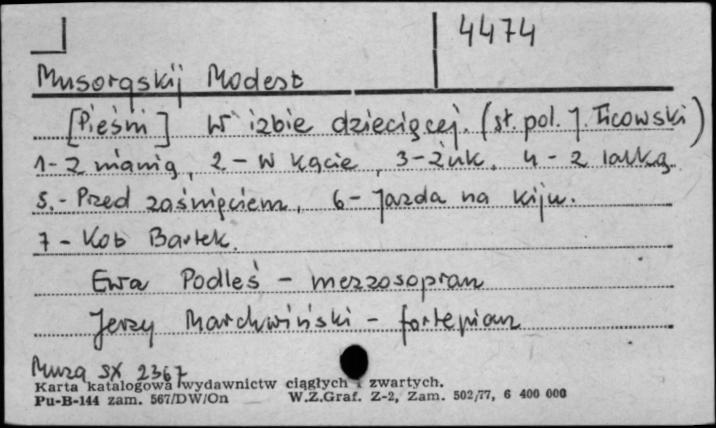 4474
Musorgskij Modest
[Pieśni] W izbie dziecięcej. (sł. pol. J. Ficowski)
1-Z nianią, 2-W kącie, 3-Żuk, 4-Z lalką.
5.-Przed zaśnięciem, 6-Jazda na kiju.
7-Kot Bartek.
Ewa Podleś - mezzosopran
Jerzy Marchwiński - fortepian
Muza SX 2367
Karta katalogowa wydawnictw ciągłych i zwartych.
Pu-B-144 zam. 567/DW/On W.Z.Graf. Z-2, Zam. 502/77, 6 400 000